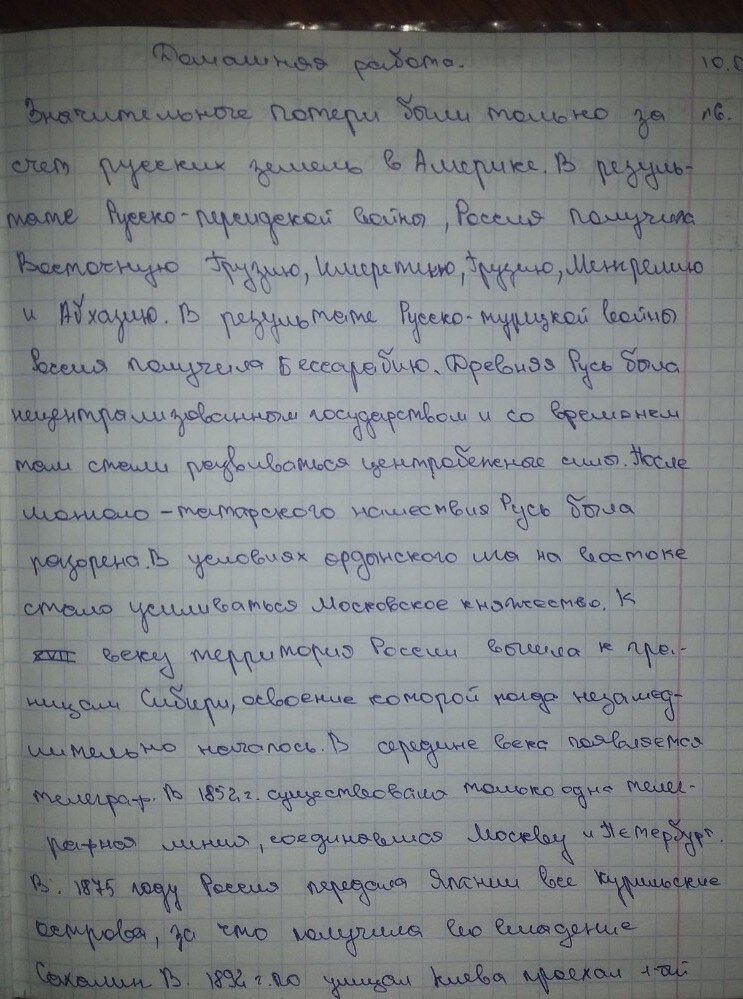 Домашняя работа. 10.0
Значительные потери были только за
счет русских земель в Америке. В резуль-
тате Русско-персидской войны, Россия получила
Восточную Грузию, Имеретию, Грузию, Менгрелию
и Абхазию. В результате Русско-турецкой войны
Россия получила Бессарабию. Древняя Русь была
нецентрализованным государством и со временем
там стали развиваться центробежные силы. После
монголо-татарского нашествия Русь была
разорена. В условиях ордынского ига на востоке
стало усиливаться Московское княжество. К
XVII веку территория России вышла к гра-
ницам Сибири, освоение которой тогда незамед-
лительно началось. В середине века появляется
телеграф. В 1852 г. существовала только одна телег-
рафная линия, соединявшая Москву и Петербург.
В 1875 году Россия передала Японии все Курильские
острова, за что получила во владение
Сахалин. В 1892 г. по улицам Киева проехал 1-ый